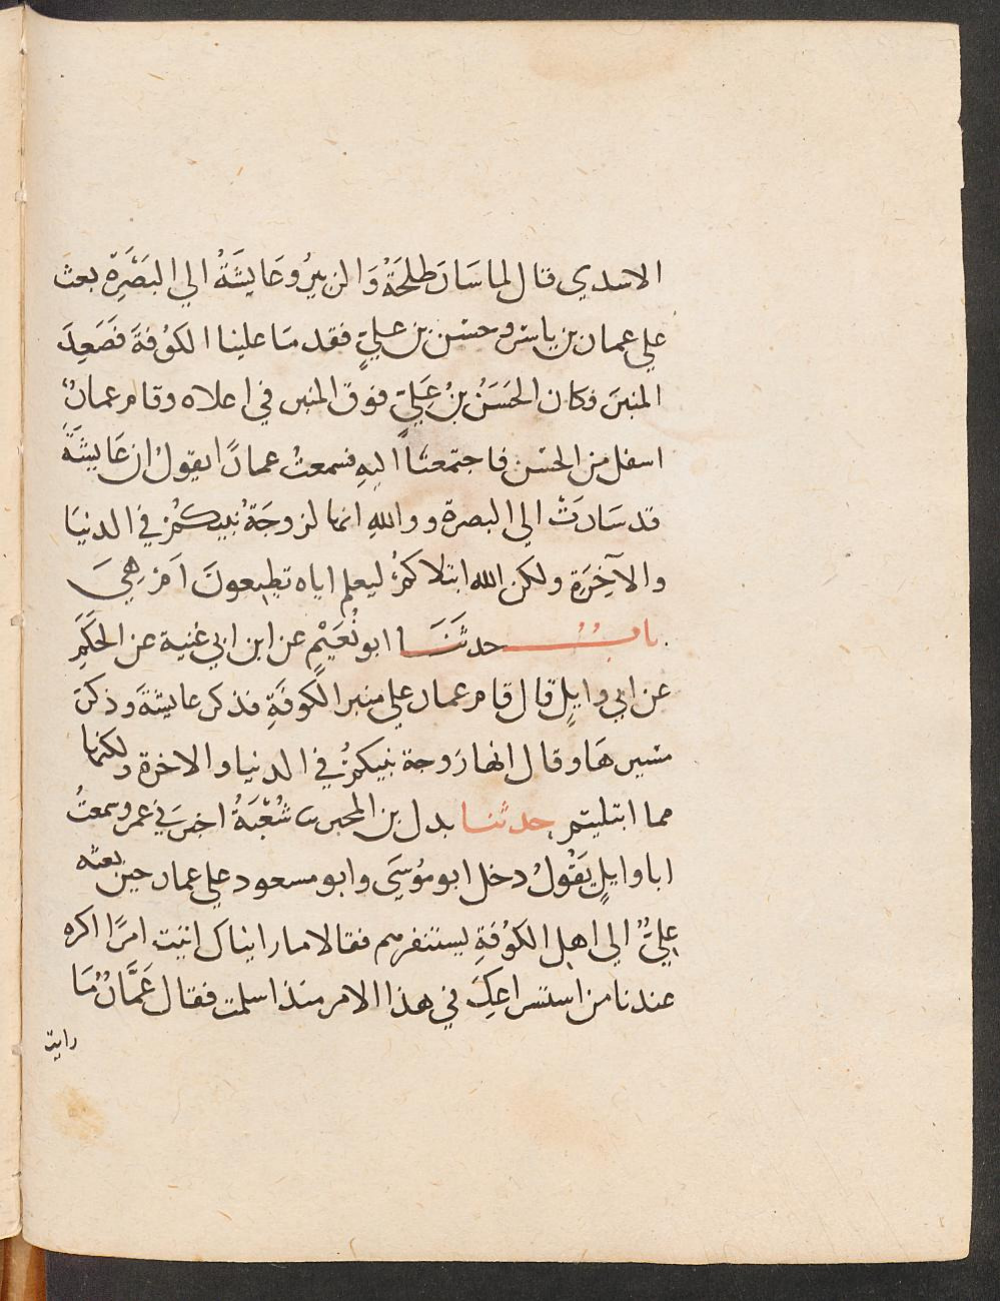 الاسدي قال لما سَارَ طلحَةُ وَالزبيرُ وعَايشَةُ الي البَصَرَةِ بعث
علي عمار بن ياسر وحسن بن عليٍ فقدمَا علينا الكوُفةَ فَصَعِدَ
المنبرَ فكان الحَسَنُ بنُ عَلِيٍ فوق المنبر في اعلاه وقام عمارٌ
اسفل من الحسن فاجتمعنا اليهِ فسمعتُ عمارًا يقولُ ان عَايشَةَ
قد سَارَتْ الي البصرة و والله انها لزوجَةُ نبيكمُ في الدنيَا
والآخِرَةِ ولكن الله ابتلاكمُ ليعلم اياه تطيعونَ اَم هِيَ
بابٌ حدثنَا ابو نُعَيْمٍ عن ابن ابي غنية عن الحَكَمِ
عن ابي وايلٍ قال قام عمار علي منبر الكوفَةِ فذكر عايشةَ وذكرَ
مسيرهَا وقال انها زوجة نبيكمُ في الدنيا والاخرة ولكنها
مما ابتليتم حدثنا بدل بن المحبر نا شُعْبَةُ اخبرَني عمرو سمعتُ
ابا وايلٍ يَقُولُ دخل ابو موُسَي وابو مسعود علي عمار حين بعثه
عليٌّ الي اهل الكوُفةِ يستنفرهم فقالا ما رايناك اتيت امرًا اكره
عندنا من اسراعِكَ في هذا الامر منذ اسلمت فقال عَمَّارٌ مَا
رايت